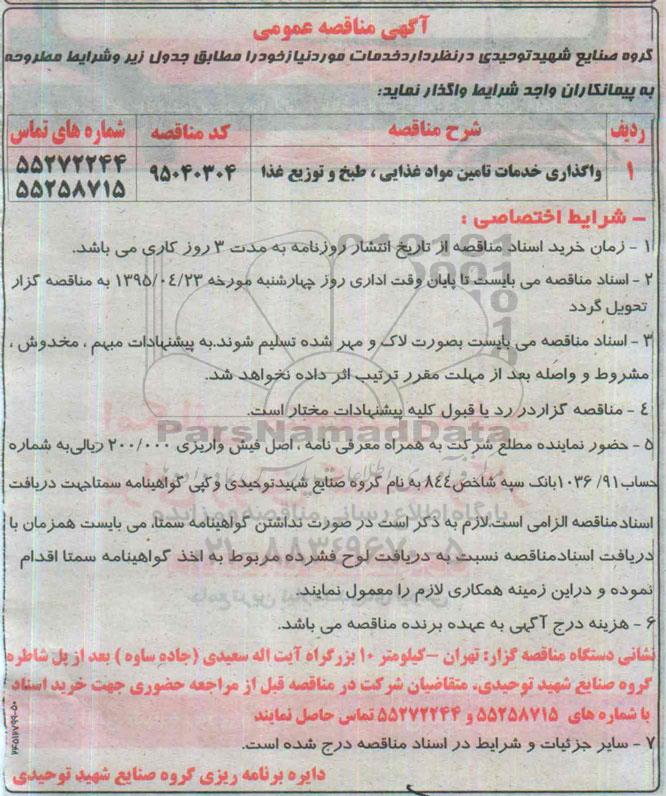 آگهی مناقصه عمومی
گروه صنایع شهیدتوحیدی درنظرداردخدمات موردنیازخودرا مطابق جدول زیر وشرایط مطروحه
به پیمانکاران واجد شرایط واگذار نماید:
ردیف شرح مناقصه کد مناقصه شماره های تماس
۱ واگذاری خدمات تامین مواد غذایی ، طبخ و توزیع غذا ۹۵۰۴۰۳۰۴ ۵۵۲۷۲۲۴۴
۵۵۲۵۸۷۱۵
– شرایط اختصاصی :
۱ - زمان خرید اسناد مناقصه از تاریخ انتشار روزنامه به مدت ۳ روز کاری می باشد.
۲ - اسناد مناقصه می بایست تا پایان وقت اداری روز چهارشنبه مورخه ۱۳۹۵/۰۴/۲۳ به مناقصه گزار
تحویل گردد
۳ - اسناد مناقصه می بایست بصورت لاک و مهر شده تسلیم شوند.به پیشنهادات مبهم ، مخدوش ،
مشروط و واصله بعد از مهلت مقرر ترتیب اثر داده نخواهد شد.
۴ - مناقصه گزاردر رد یا قبول کلیه پیشنهادات مختار است.
ParsNamadData
۵ - حضور نماینده مطلع شرکت به همراه معرفی نامه ، اصل فیش واریزی ۲۰۰/۰۰۰ ریالی‌به شماره
حساب۹۱/ ۱۰۳۶بانک سپه شاخص۸۴۴ به نام گروه صنایع شهیدتوحیدی وکپی گواهینامه سمتاجهت دریافت
اسنادمناقصه الزامی است.لازم به ذکر است در صورت نداشتن گواهینامه سمتا، می بایست همزمان با
دریافت اسنادمناقصه نسبت به دریافت لوح فشرده مربوط به اخذ گواهینامه سمتا اقدام
نموده و دراین زمینه همکاری لازم را معمول نمایند.
۶ - هزینه درج آگهی به عهده برنده مناقصه می باشد.
نشانی دستگاه مناقصه گزار: تهران –کیلومتر ۱۰ بزرگراه آیت اله سعیدی (جاده ساوه ) بعد از پل شاطره
گروه صنایع شهید توحیدی. متقاضیان شرکت در مناقصه قبل از مراجعه حضوری جهت خرید اسناد
با شماره های ۵۵۲۵۸۷۱۵ و ۵۵۲۷۲۲۴۴ تماس حاصل نمایند
۷ - سایر جزئیات و شرایط در اسناد مناقصه درج شده است.
دایره برنامه ریزی گروه صنایع شهید توحیدی